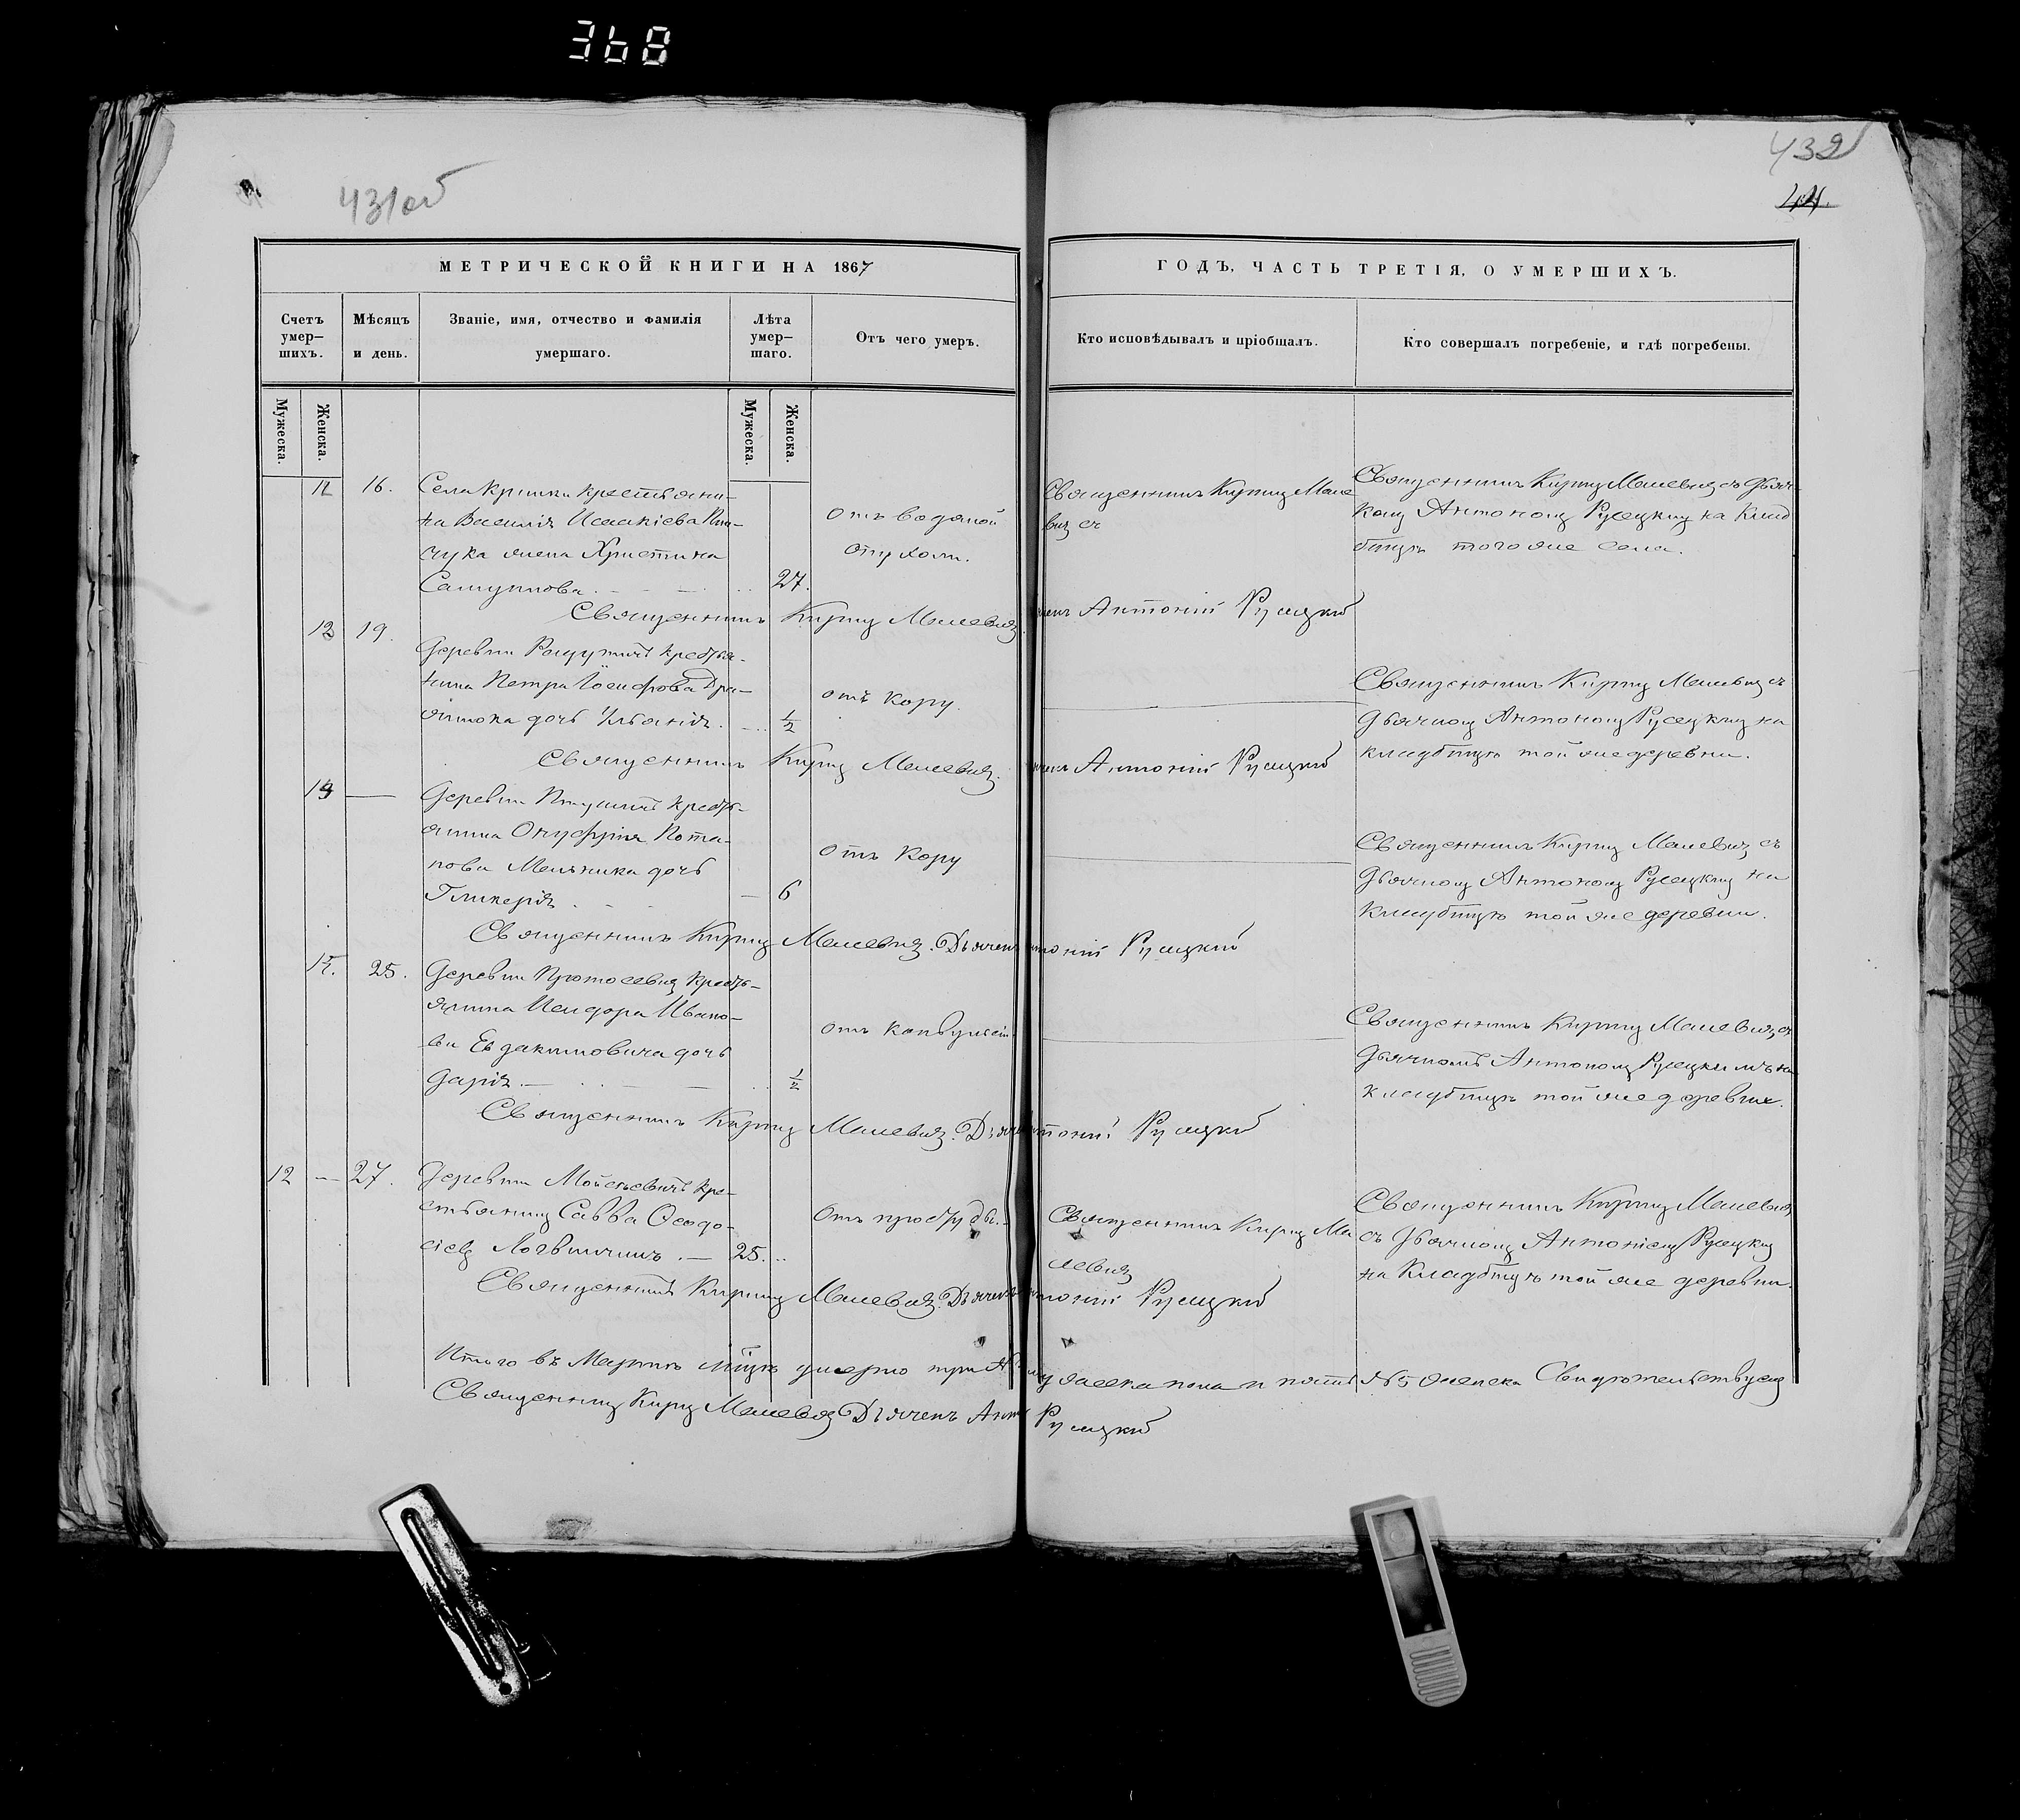 368
431об
432
44.
МЕТРИЧЕСКОЙ КНИГИ НА 1867
ГОДЪ, ЧАСТЬ ТРЕТІЯ, О УМЕРШИХЪ.
Счетъ умер–шихъ.
Мѣсяцъ и день.
Званіе, имя, отчество и фамилія умершаго.
Лѣта умер–шаго.
Отъ чего умеръ.
Кто исповѣдывалъ и пріобщалъ.
Кто совершалъ погребеніе, и гдѣ погребены.
Мужеска.
Женска.
Мужеска.
Женска.
16. Села крестьяни–
на Василія Исаакіева
жена Христина
27.
отъ водяной
опухоли.
Священникъ Кирилъ Мале
вичъ
Священникъ Кирилъ Малевичъ съ Дьяч–
комъ Антономъ Русецкимъ на клад
бищѣ того же села.
Священникъ Кирилъ Малевичъ. Антоній Русецкій
12 19. Деревни крестья–
нина Петра Іосифова
дочь Ульянія. 1/2
отъ кору.
Священникъ Кирилъ Малевичъ съ
Дьячкомъ Антономъ Русецкимъ на
кладбищѣ той же деревни.
Священникъ Кирилъ Малевичъ. Антоній Русецкій
13 — Деревни крестья–
янина Онуфрія Пота–
пова Мельника дочь
Гликерія — 6
отъ кору
Священникъ Кирилъ Малевичъ съ
Дьячкомъ Антономъ Русецкимъ на
кладбищѣ той же деревни.
Священникъ Кирилъ Малевичъ. Дьячекъ Антоній Русецкій
25. Деревни Протасевичъ кресть–
янина Исидора Ивано–
ва Евдакимовича дочь
Дарія. 1/2
отъ
Священникъ Кирилъ Малевичъ съ
Дьячкомъ Антономъ Русецкимъ на
кладбищѣ той же деревни.
Священникъ Кирилъ Малевичъ. Дьячекъ Антоній Русецкій
12 — 27. Деревни Мойсеевичъ кре–
стьянинъ Савва Ѳеодо–
сіевъ 25.
Отъ простуды.
Священникъ Кирилъ Ма
левичъ
Священникъ Кирилъ Малевичъ
съ Дьячкомъ Антоніемъ Русецкимъ
на кладбищѣ той же деревни.
Священникъ Кирилъ Малевичъ. Дьячекъ Антоній Русецкій
Итого въ Мартѣ мцѣ умерло три мужеска пола и пять №5 женска Свидѣтельствуемъ
Священникъ Кирилъ Малевичъ Дьячекъ Антоній Русецкій